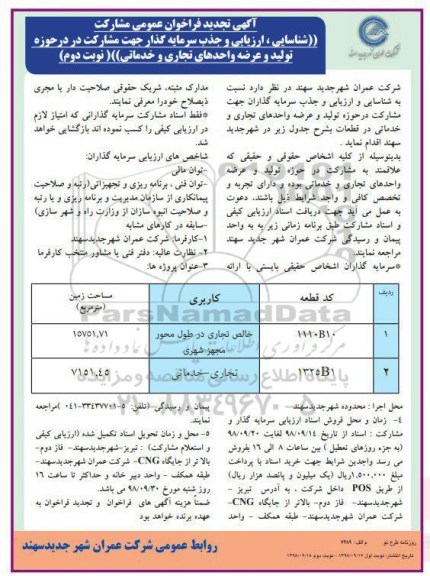 آگهی تجدید فراخوان عمومی مشارکت
((شناسایی ، ارزیابی و جذب سرمایه گذار جهت مشارکت در درحوزه
تولید و عرضه واحدهای تجاری و خدماتی))( نوبت دوم)
شرکت عمران شهرجدید سهند در نظر دارد نسبت
به شناسایی و ارزیابی و جذب سرمایه گذاران جهت
مشارکت درحوزه تولید و عرضه واحدهای تجاری و
خدماتی در قطعات بشرح جدول زیر در شهرجدید
سهند اقدام نماید .
بدینوسیله از کلیه اشخاص حقوقی و حقیقی که
علاقمند به مشارکت در حوزه تولید و عرضه
واحدهای تجاری و خدماتی بوده و دارای تجربه و
تخصص کافی و واجد شرایط ذیل باشند، دعوت
به عمل می آید جهت دریافت اسناد ارزیابی کیفی
و اسناد مشارکت طبق برنامه زمانی زیر به به واحد
پیمان و رسیدگی شرکت عمران شهر جدید سهند
مراجعه نمایند.
*سرمایه گذاران اشخاص حقیقی بایستی با ارائه
مدارک مثبته، شریک حقوقی صلاحیت دار یا مجری
ذیصلاح خودرا معرفی نمایند.
*فقط اسناد مشارکت سرمایه گذارانی که امتیاز لازم
در ارزیابی کیفی را کسب نموده اند بازگشایی خواهد
شد.
شاخص های ارزیابی سرمایه گذاران:
-توان مالی
-توان فنی ، برنامه ریزی و تجهیزاتی(رتبه و صلاحیت
پیمانکاری از سازمان مدیریت و برنامه ریزی و یا رتبه
و صلاحیت انبوه سازان از وزارت راه و شهر سازی)
-سابقه در کارهای مشابه
۱-کارفرما: شرکت عمران شهرجدیدسهند
۲- نظارت عالیه: دفتر فنی یا مشاور منتخب کارفرما
۳-عنوان پروژه ها:
ردیف کد قطعه کاربری مساحت زمین (مترمربع)
۱ ۱۱۱۰B۱۰ خالص تجاری در طول محور مجهز شهری ۱۵۷۵۱,۷۱
۲ ۱۳۲۵B۱ تجاری-خدماتی ۷۱۵۱,۴۵
محل اجرا : محدوده شهرجدیدسهند
۴- زمان و محل فروش اسناد ارزیابی سرمایه گذار و
مشارکت : اسناد از تاریخ ۹۸/۰۹/۱۴ لغایت ۹۸/۰۹/۲۰
(به جزء روزهای تعطیل ) بین ساعات ۸ الی ۱۶ بفروش
می رسد واجدین شرایط جهت خرید اسناد با پرداخت
مبلغ ۱,۵۰۰,۰۰۰ریال (یک میلیون و پانصد هزار ریال)
از طریق POS داخل شرکت ، به آدرس تبریز -
شهرجدیدسهند- فاز دوم- بالاتر از جایگاه CNG-
شرکت عمران شهرجدیدسهند- طبقه همکف - واحد
پیمان و رسیدگی (تلفن: ۵-۳۳۴۳۷۷۰۱-۰۴۱ )مراجعه
نمایند.
۵- محل و زمان تحویل اسناد تکمیل شده (ارزیابی کیفی
و استعلام مشارکت) : تبریز-شهرجدیدسهند- فاز دوم-
بالا تر از جایگاه CNG- شرکت عمران شهرجدیدسهند-
طبقه همکف - واحد دبیر خانه و حداکثر تا ساعت ۱۶
روز شنبه مورخ ۹۸/۰۹/۳۰ می باشد.
ضمناً هزینه آگهی های فراخوان و تجدید فراخوان به
عهده برنده خواهد بود
روابط عمومی شرکت عمران شهر جدیدسهند
ParsNamadData
۰۲۱-۸۸۳۴۹۶۷۰-۵